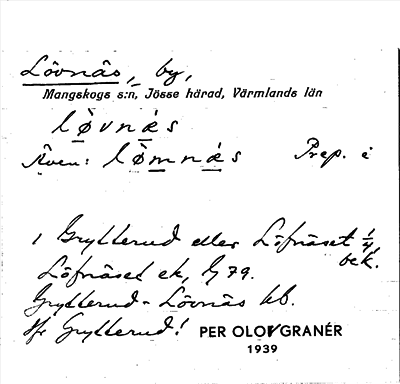 Lövnäs, by,
Mangskogs s:n, Jösse härad, Värmlands län
lø̀vnæs
Även: lø̀mnæs Prep. i
1 Grytterud eller Löfnäset 1/4, bek.
Löfnäset ek, G 79.
Grytterud - Lövnäs kb.
Jfr Grytterud!
PER OLOV GRANÉR
1939